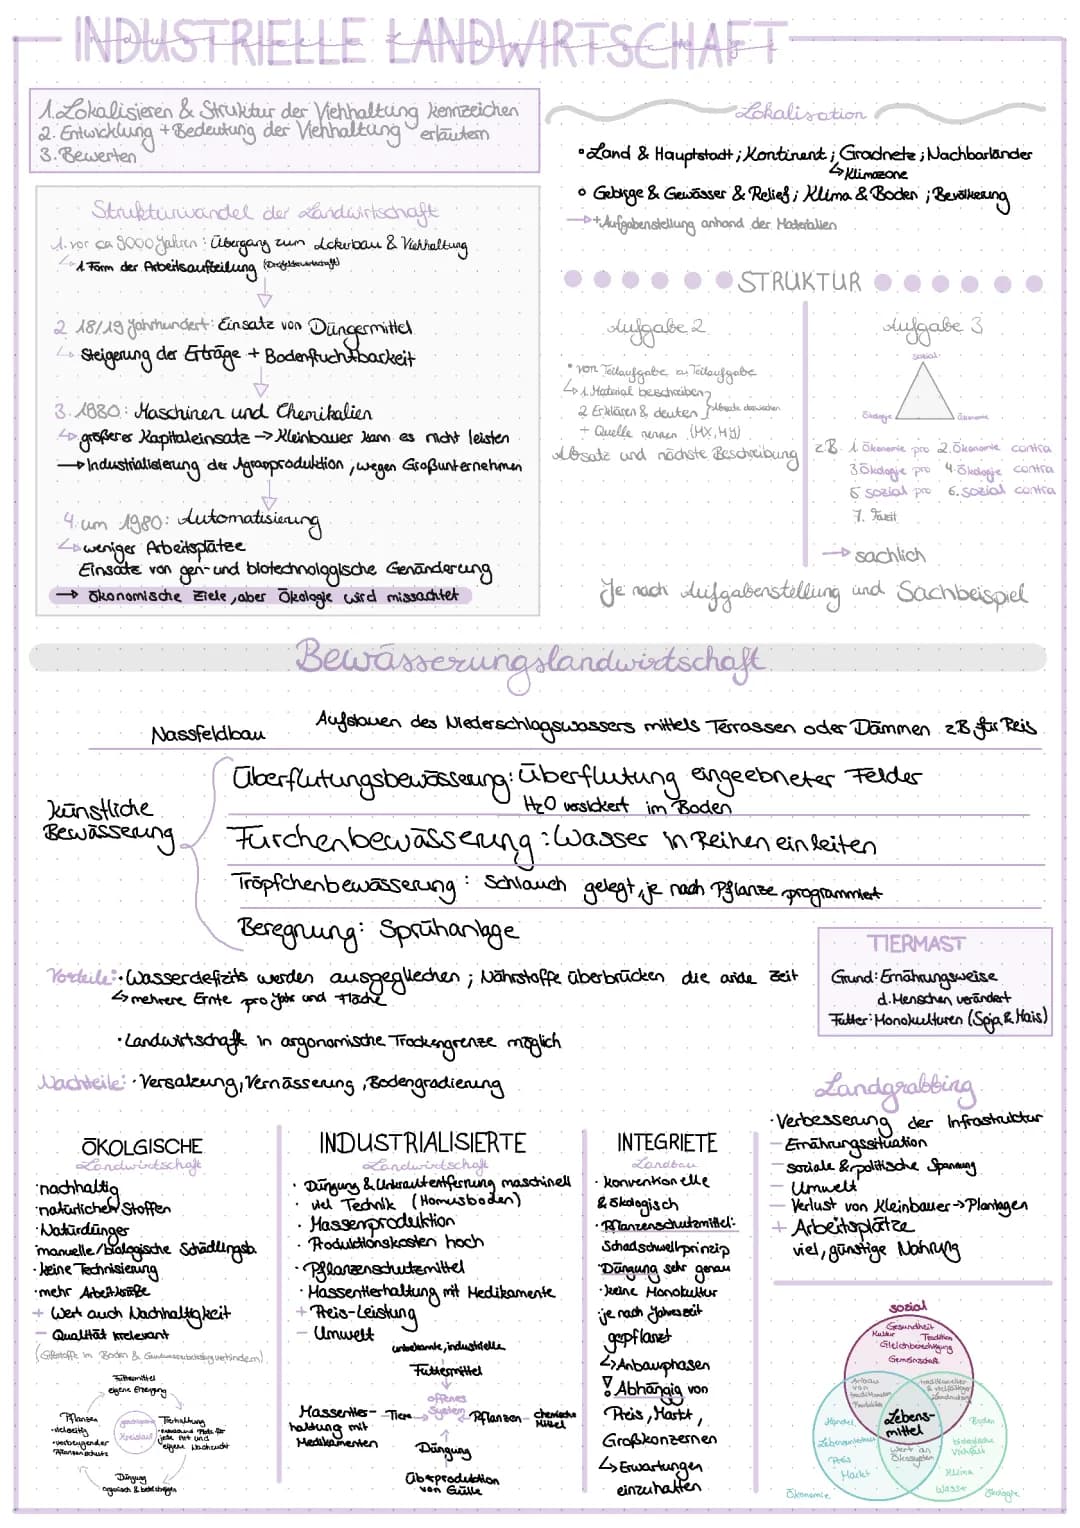 INDUSTRIELLE LANDWIRTSCHAFT
1. Lokalisieren & Struktur der Viehhaltung kennzeichen
2. Entwicklung + Bedeutung der Viehhaltung erläutern
3. Bewerten
Strukturwandel der Landwirtschaft
1. vor ca 9000 Jahren: Übergang zum Ackerbau & Viehhaltung
↳ 1 Form der Arbeitsaufteilung
2 18/19 Jahrhundert: Einsatz von Düngermittel
↳ Steigerung der Erträge + Bodenfruchtbarkeit
3. 1880: Maschinen und Chemikalien
↳ größerer Kapitaleinsatz → Kleinbauer kann es nicht leisten
→ Industrialisierung der Agrarproduktion, wegen Großunternehmen
4. um 1980: Automatisierung
↳ weniger Arbeitsplätze
Einsatz von gen- und biotechnologische Genänderung
→ Ökonomische Ziele, aber Ökologie wird missachtet
Lokalisation
• Land & Hauptstadt; Kontinent; Gradnetz; Nachbarländer
↳ Klimazone
• Gebirge & Gewässer & Relief; Klima & Boden; Bevölkerung
→ + Aufgabenstellung anhand der Materialien
STRUKTUR
Aufgabe 2
• von Teilaufgabe zu Teilaufgabe
↳ 1. Material beschreiben
2 Erklären & deuten
+ Quelle nennen (MX, MY)
Absatz und nächste Beschreibung
Aufgabe 3
sozial
Ökologie Ökonomie
z.B. 1. Ökonomie pro 2. Ökonomie contra
3 Ökologie pro 4. Ökologie contra
5 sozial pro 6. sozial contra
7. Fazit
→ sachlich
Je nach Aufgabenstellung und Sachbeispiel
Bewässerungslandwirtschaft
Nassfeldbau Aufstauen des Niederschlagswassers mittels Terrassen oder Dämmen z.B für Reis
künstliche Bewässerung
Überflutungsbewässerung: Überflutung eingeebneter Felder
H₂O versickert im Boden
Furchenbewässerung: Wasser in Reihen einleiten
Tröpfchenbewässerung: Schlauch gelegt, je nach Pflanze programmiert
Beregnung: Sprühanlage
Vorteile: • Wasserdefizits werden ausgeglichen; Nährstoffe überbrücken die aride Zeit
↳ mehrere Ernte pro Jahr und Fläche
• Landwirtschaft in argonomische Trockengrenze möglich
Nachteile: • Versalzung, Vernässerung, Bodengradierung
TIERMAST
Grund: Ernährungsweise
d. Menschen verändert
Futter: Monokulturen (Soja & Mais)
Landgrabbing
• Verbesserung der Infrastruktur
– Ernährungssituation
– soziale & politische Spannung
– Umwelt
– Verlust von Kleinbauer → Plantagen
+ Arbeitsplätze
viel, günstige Nahrung
ÖKOLGISCHE
Landwirtschaft
• nachhaltig
• natürlichen Stoffen
• Natürdünger
• manuelle/biologische Schädlingsb.
• keine Technisierung
• mehr Arbeitskräfte
+ Wert auch Nachhaltigkeit
– Qualität irrelevant
Futtermittel
eigene Erzeugung
Pflanzen
• vielseitig
• vorbeugender Pflanzenschutz
Kreislauf
Tierhaltung
Düngung
INDUSTRIALISIERTE
Landwirtschaft
• Düngung & Unkrautentfernung maschinell
• viel Technik (Homusboden)
• Massenproduktion
• Produktionskosten hoch
• Pflanzenschutzmittel
• Massentierhaltung mit Medikamente
+ Preis-Leistung
– Umwelt
unbekannte, industrielle
Futtermittel
offenes System
Massentierhaltung mit Medikamenten
Tiere
Pflanzen
chemische Mittel
Düngung
Überproduktion von Gülle
INTEGRIETE
Landbau
• konventionelle
& ökologisch
• Pflanzenschutzmittel:
Schadschwellprinzip
• Düngung sehr genau
• keine Monokultur
• je nach Jahreszeit
gepflanzt
↳ Anbauphasen
! Abhängig von
Preis, Markt,
Großkonzernen
↳ Erwartungen
einzuhalten
sozial
Gesundheit
Kultur Tradition
Gleichberechtigung
Gemeinschaft
Lebensmittel
Handel
Preis
Markt
Ökonomie
Wert an Ökosystem
Boden
biologische Vielfalt
Klima
Wasser
Ökologie